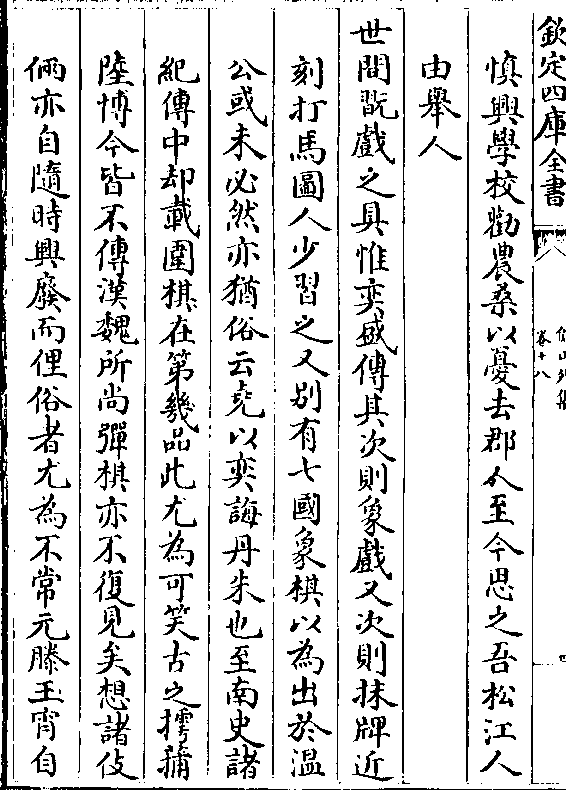 欽定四庫全書
卷十八
慎興學校勸農桑以憂去郡人至今思之吾松江人
由舉人
世間翫戲之具惟奕盛傳其次則象戲又次則抹牌近
刻打馬圖人少習之又别有七國象棋以為出於温
公或未必然亦猶俗云堯以奕誨丹朱也至南史諸
紀傳中却載圍棋在第幾品此尤為可笑古之摴蒱
陸博今皆不傳漢魏所尚彈棋亦不復見矣想諸伎
倆亦自隨時興廢而俚俗者尤為不常元滕玉霄自